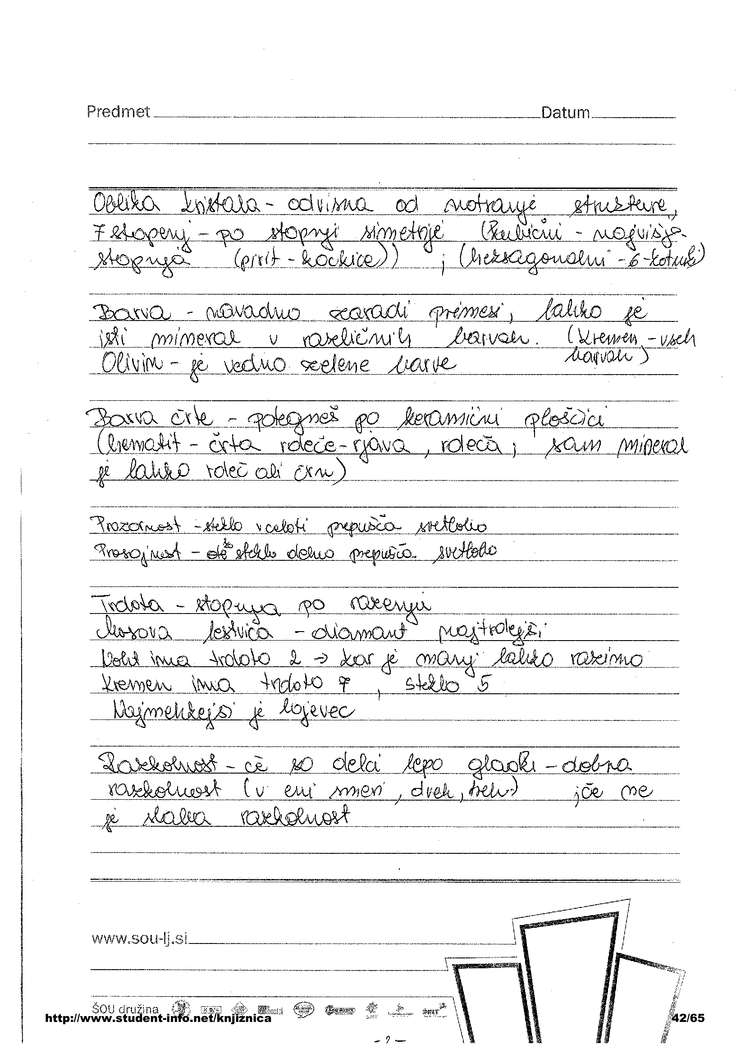 Predmet Datum
Oblika kristala - odvisna od notranje strukture,
7 stopenj - po stopnji simetrije (kubični - najvišja
stopnja (pirit - kockice)) ; (heksagonalni - 6-kotniki)
Barva - navadno zaradi primesi, lahko je
isti mineral v različnih barvah. (Kremen - vseh
barvah)
Olivin - je vedno zelene barve
Barva črte - potegneš po keramični ploščici
(hematit - črta rdeče-rjava, rdeča; sam mineral
je lahko rdeč ali črn)
Prozornost - steklo v celoti prepušča svetlobo
Prosojnost - steklo delno prepušča svetlobo
Trdota - stopnja po razenju
Mosova lestvica - diamant najtrdejši
Noht ima trdoto 2 → kar je manj lahko razimo
Kremen ima trdoto 7, steklo 5
Najmehkejši je lojevec
Razkolnost - če so delci lepo gladki - dobra
razkolnost (v eni smeri, dveh, treh) ; če ne
je slaba razkolnost
www.sou-lj.si
ŠOU družina
http://www.student-info.net/knjiznica 42/65
- 2 -